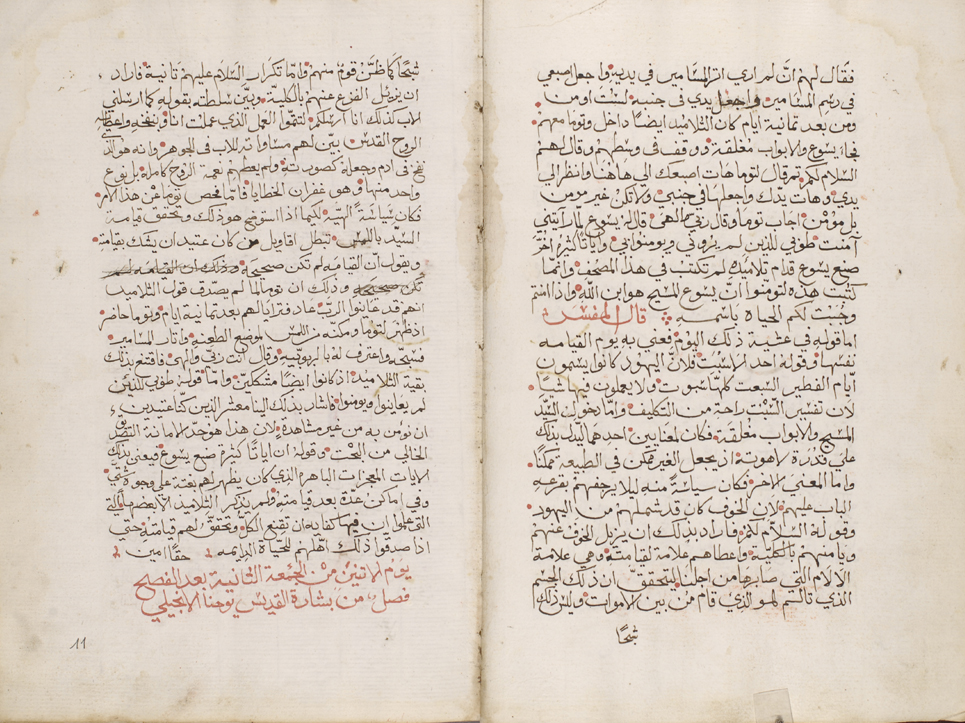 فقال لهم ان لم اري اثر المسامير في يديه واجعل اصبعي
في رسم المسامير واجعل يدي في جنبه لست اومن
ومن بعد ثمانية ايام كان التلاميذ ايضًا داخل وتوما معهم
فجاء يسوع والابواب مغلقة ووقف في وسطهم وقال لهم
السلام لكم ثم قال لتوما هات اصبعك الى هاهنا وانظر الى
يدي وهات يدك واجعلها في جنبي ولا تكن غير مومن
بل مؤمن اجاب توما وقال ربي والهي قال له يسوع لما رايتني
آمنت طوبي للذين لم يروني ويومنوا بي واياتًا كثيرة اخر
صنع يسوع قدام تلاميذه لم تكتب في هذا المصحف وانما
كتبت هذه لتومنوا انّ يسوع المسيح هو ابن الله واذا امنتم
وجبت لكم الحياة باسمه قال المفسر
اما قوله في عشية ذلك اليوم فعني به يوم القيامه
نفسها وقوله احد السبت فلان اليهود كانوا يسمون
ايام الفطير السبعت كلها سبوت ولا يعملون فيها شيًا
لان تفسير السبت راحة من التكليف واما دخول السيد
المسيح والابواب مغلقة فكان لمعنايين احدهما ليدل بذلك
على قدرة لاهوته اذ يجعل الغير ممكن في الطبيعة ممكنًا
واما المعني الاخر فكان سياسة منه ليلا يرجفهم بقرعه
الباب عليهم لان الخوف كان قد شملهم من اليهود
وقوله السلام لكم فاراد بذلك ان يزيل الخوف عنهم
ويامنهم بالكلية واعطاهم علامة لقيامته وهي علامة
الالام التي صابرها من اجلنا ليتحقق ان ذلك الجسم
الذي تالم لهو الذي قام من بين الاموات وليس ذلك
شبحًا
شبحًا كما ظن قوم منهم وانما تكرار السلام عليهم ثانية فاراد
ان يزيل الفزع عنهم بالكلية وبيّن سلطته بقوله كما ارسلني
الاب لذلك انا ارسلكم لتتموا العمل الذي عملت انا ونفخه واعطايه
الروح القدس بيّن لهم مساواته للاب في الجوهر وانه هو الذي
نفخ في ادم وجعله كصورته ولم يعطهم نعمة الروح كامله بل نوع
واحد منها وهو غفران الخطايا فاما فحص توما عن هذا الامر
فكان سياسة الهيّه لكيما اذا استوضح هو ذلك وتحقق قيامة
السيّد باللمس تبطل اقاويل من كان عتيد ان يشك بقيامته
ويقول ان القيامه لم تكن صحيحة وذلك ان القيامه لم
تكن صحيحة وذلك ان توما لما لم يصدق قول التلاميذ
انهم قد عاينوا الربّ عاد فترايا لهم بعد ثمانية ايام وتوما حاضر
اذ ظهر لتوما ومكنه من لمس موضع الطعنه واثار المسامير
فسبحه واعترف له بالربوبيه وقال انت ربي والهي فاقنع بذلك
بقية التلاميذ اذ كانوا ايضًا مشككين وامّا قوله طوبي للذين
لم يعاينوا ويومنوا فاشار بذلك الينا معشر الذين كنا عتيدين
ان نومن به من غير مشاهدة لان هذا هو حد الامانة التصديق
الخالي من البحث وقوله ان اياتًا كثيرة صنع يسوع فيعني بذلك
الايات المعجزات الباهره الذي كان يظهر لهم بغتة على وجوه شتي
وفي اماكن عدّة بعد قيامته ولم يذكر التلاميذ الا بعضها تلك
التي علموا ان فيها كفايه ان تقنع الكل وتحقق لهم قيامته حتى
اذا صدقوا ذلك اهلهم للحياة الدايمه حقًا امين
يوم الاتنين من الجمعة الثانية بعد الفصح
فصل من بشارة القديس يوحنا الانجيلي
11